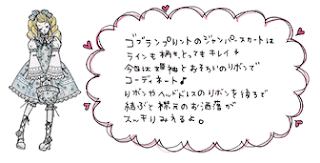 ゴブランプリントのジャンパースカートは
ラインも柄も、とってもキレイ
今回は 姫袖とおそろいのリボンで
コーディネート♪
リボンやヘッドドレスのリボンを後ろで
結ぶと襟元のお洒落が
スッキリみえるよ。